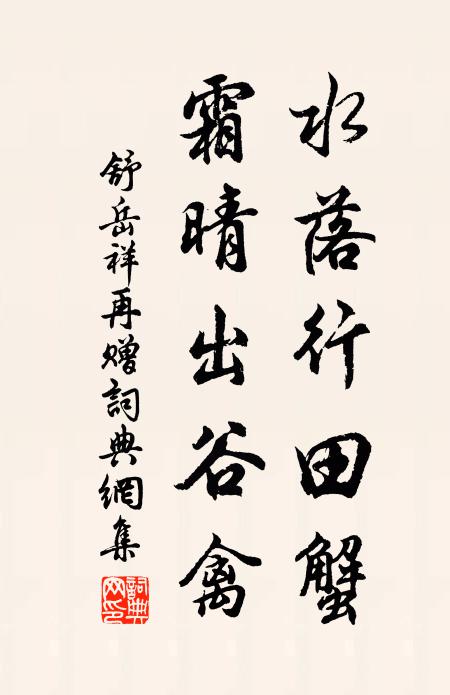 水落行田蟹
霜晴出谷禽
舒岳祥再赠詞典網集
詞典网印